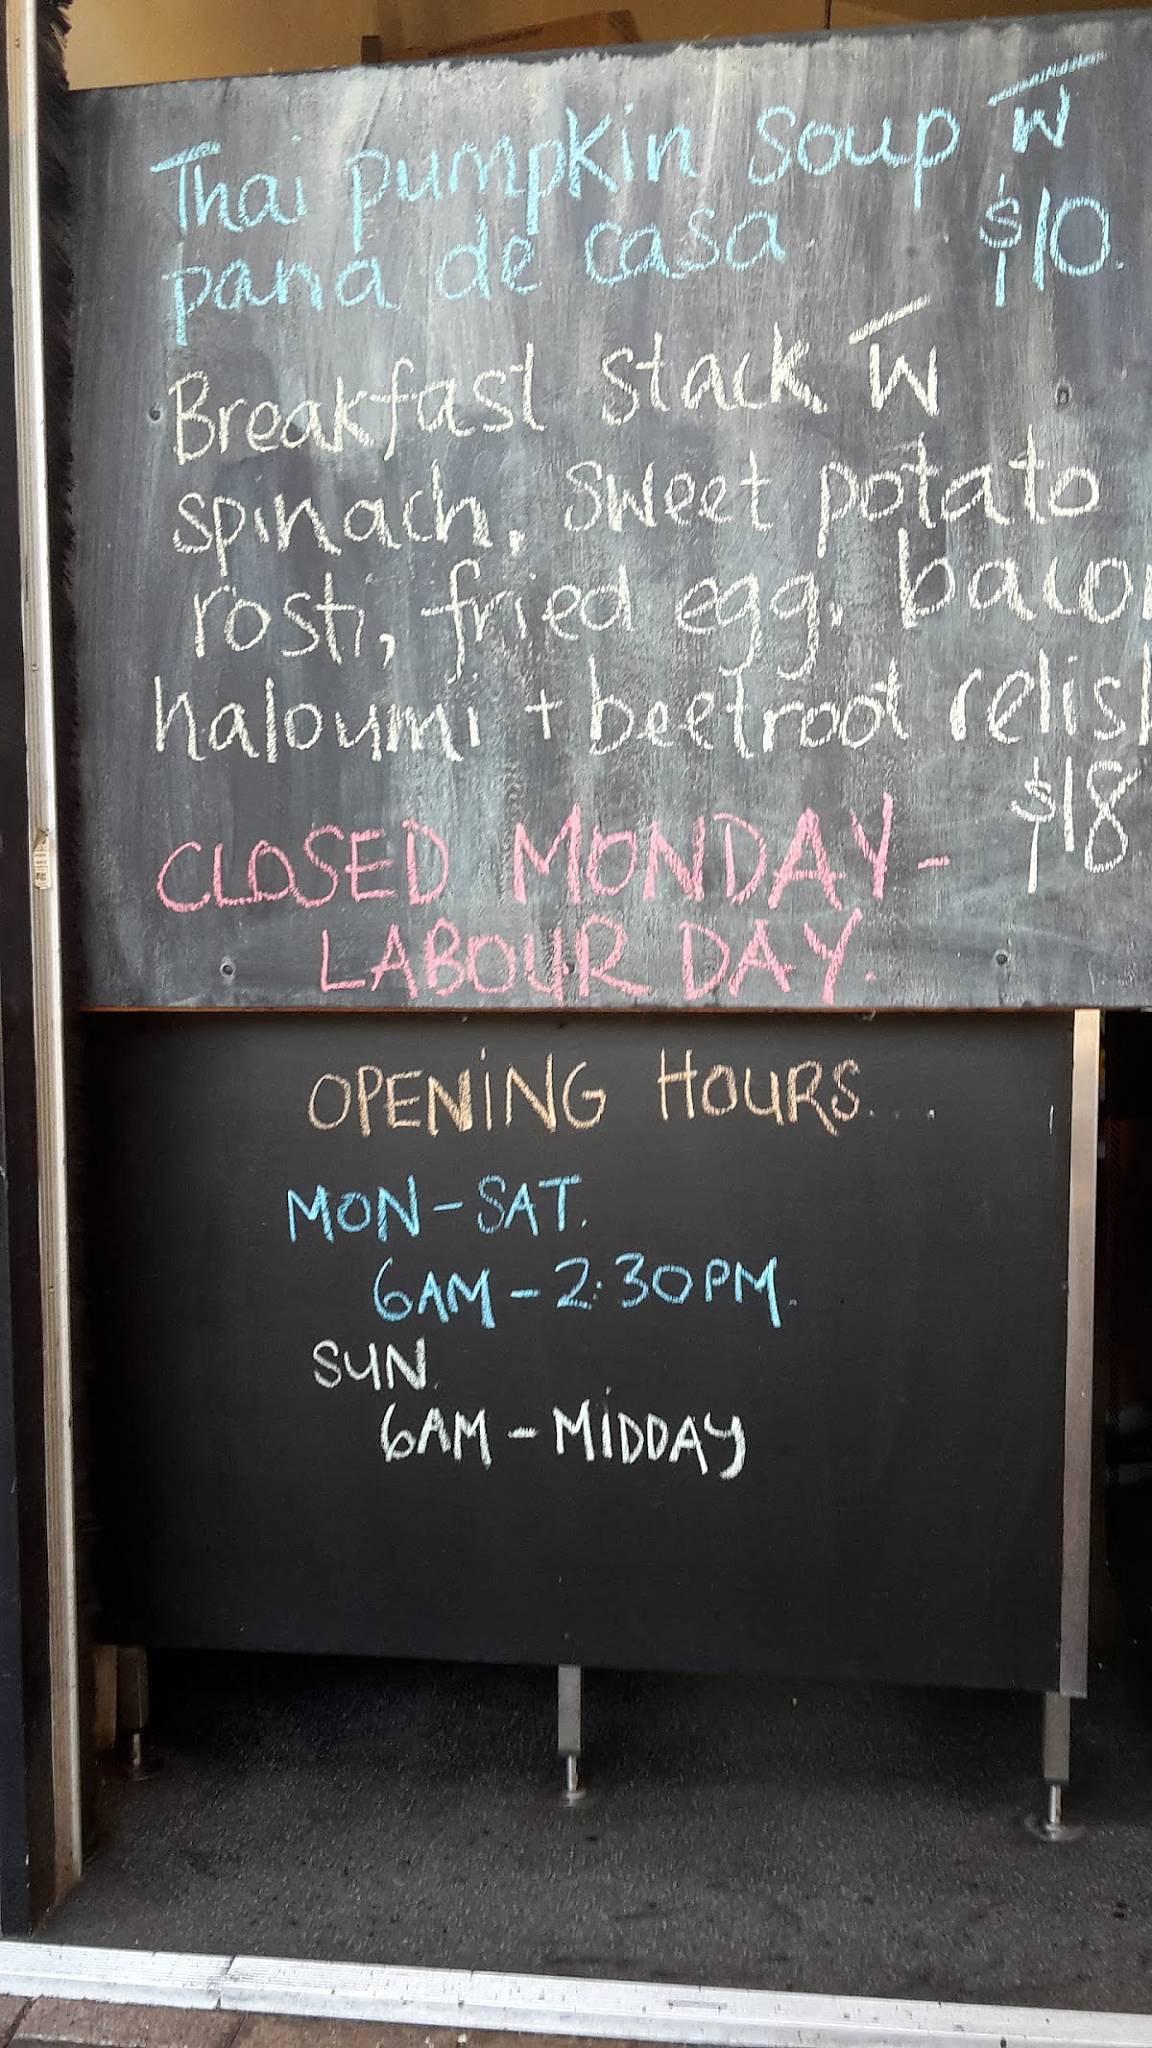 Thai pumpkin soup w̅
pana de casa $10.
Breakfast stack w̅
spinach, sweet potato
rosti, fried egg, bacon
haloumi + beetroot relish
$18
CLOSED MONDAY-
LABOUR DAY.
OPENING HOURS...
MON-SAT.
6AM-2:30PM.
SUN.
6AM-MIDDAY